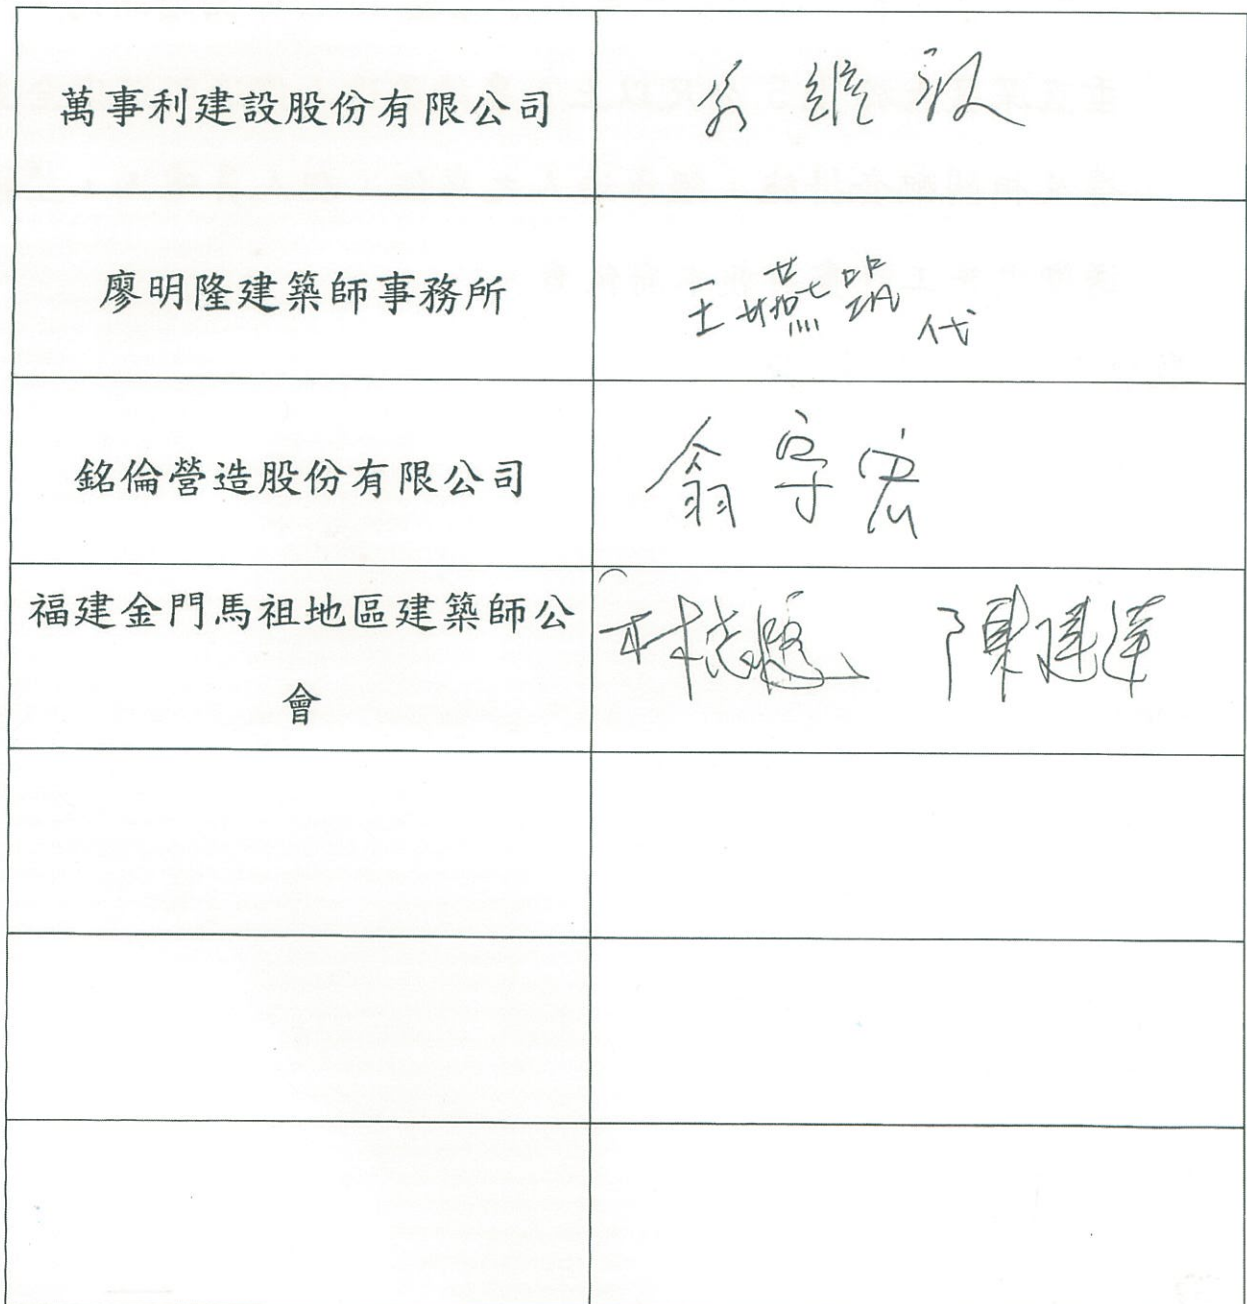 萬事利建設股份有限公司
廖明隆建築師事務所
王 代
銘倫營造股份有限公司
翁守宏
福建金門馬祖地區建築師公
會
陳建達